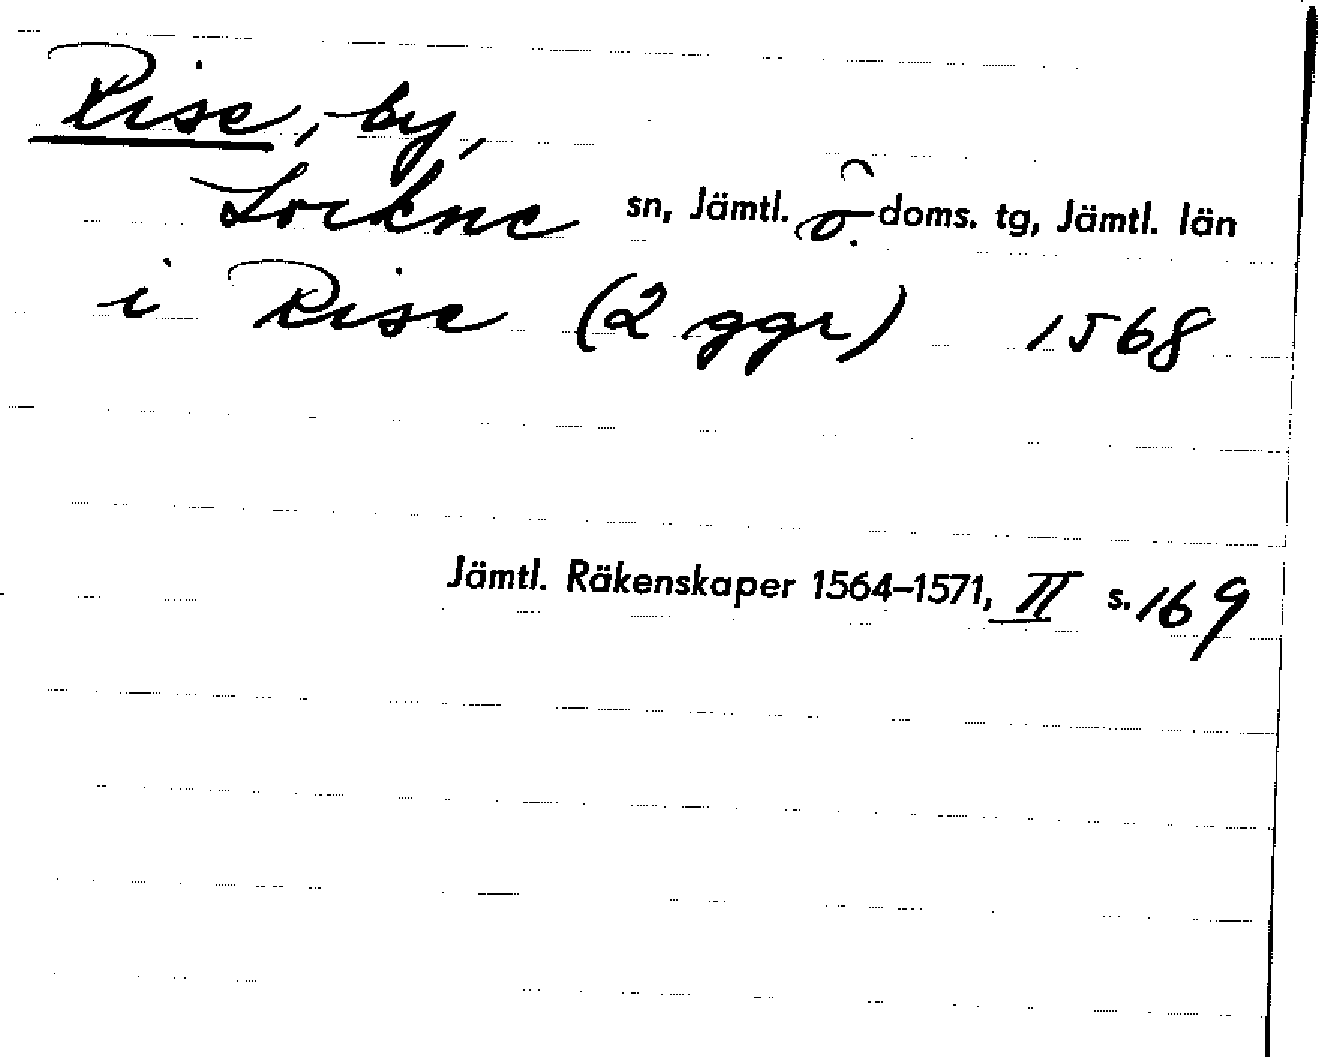 Rise, by,
Lockne sn, Jämtl. ö. doms. tg, Jämtl. län
i Rise (2 ggr) 1568
Jämtl. Räkenskaper 1564–1571, II s. 169